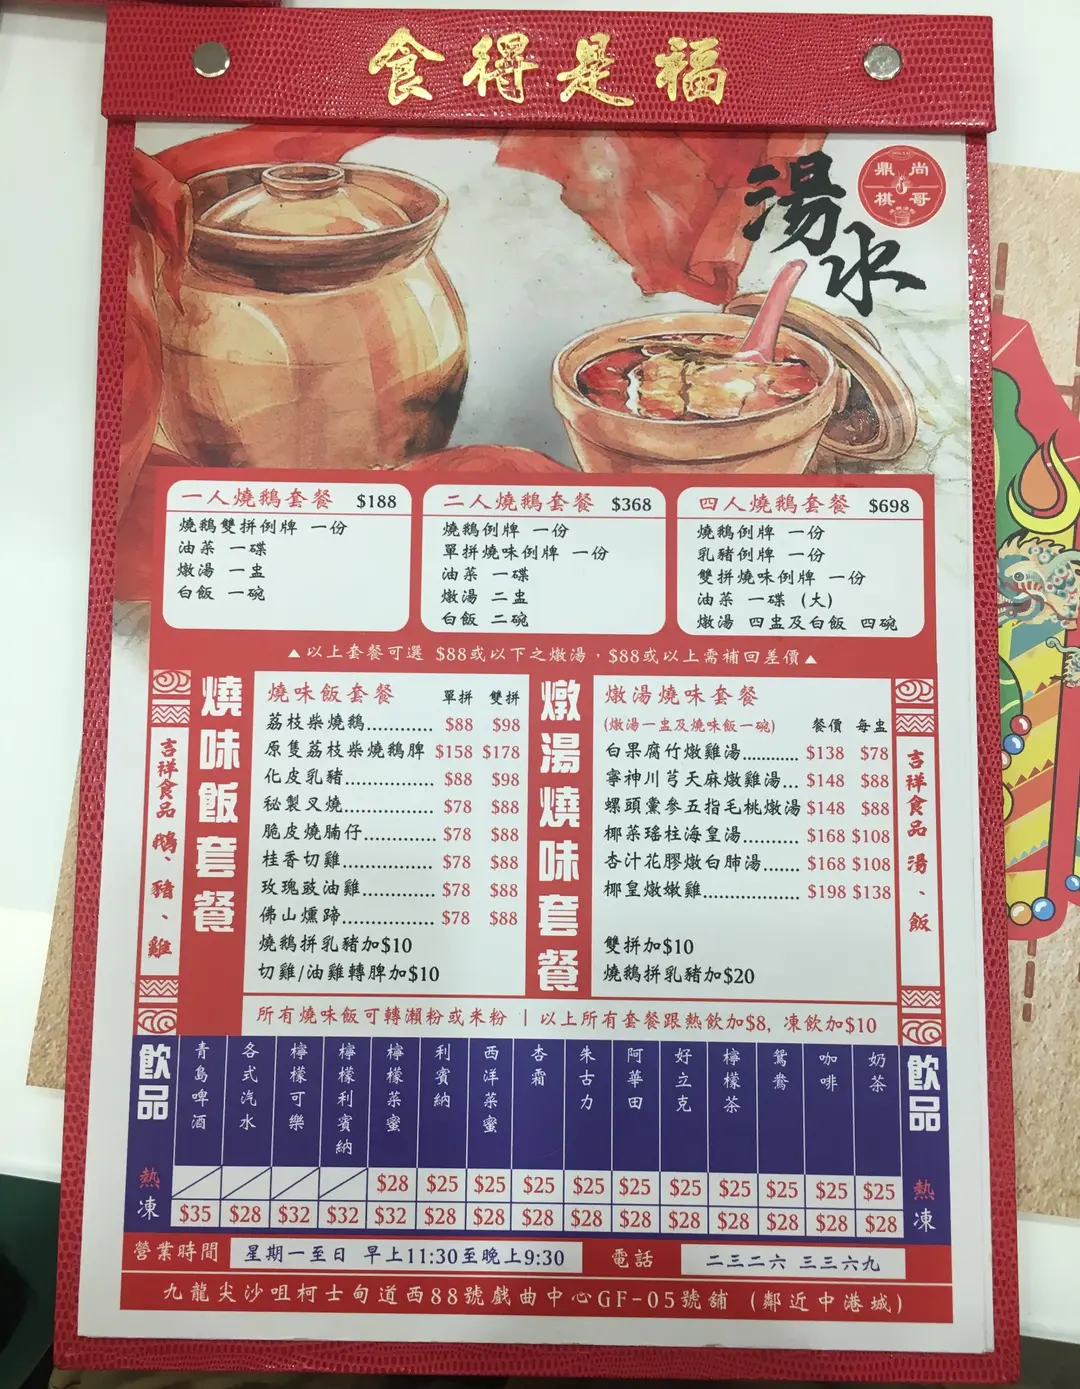 食得是福
湯水
鼎尚
棋哥
一人燒鵝套餐 $188
燒鵝雙拼例牌 一份
油菜 一碟
燉湯 一盅
白飯 一碗
二人燒鵝套餐 $368
燒鵝例牌 一份
單拼燒味例牌 一份
油菜 一碟
燉湯 二盅
白飯 二碗
四人燒鵝套餐 $698
燒鵝例牌 一份
乳豬例牌 一份
雙拼燒味例牌 一份
油菜 一碟 (大)
燉湯 四盅及白飯 四碗
▲以上套餐可選 $88或以下之燉湯，$88或以上需補回差價▲
吉祥食品 鵝、豬、雞
燒味飯套餐
燒味飯套餐 單拼 雙拼
荔枝柴燒鵝............ $88 $98
原隻荔枝柴燒鵝脾 $158 $178
化皮乳豬................ $88 $98
秘製叉燒................ $78 $88
脆皮燒腩仔............. $78 $88
桂香切雞................ $78 $88
玫瑰豉油雞............. $78 $88
佛山燻蹄................ $78 $88
燒鵝拼乳豬加$10
切雞/油雞轉脾加$10
燉湯燒味套餐
燉湯燒味套餐
(燉湯一盅及燒味飯一碗) 餐價 每盅
白果腐竹燉雞湯........... $138 $78
寧神川芎天麻燉雞湯... $148 $88
螺頭黨參五指毛桃燉湯 $148 $88
椰菜瑤柱海皇湯........... $168 $108
杏汁花膠燉白肺湯....... $168 $108
椰皇燉嫩雞.................. $198 $138
雙拼加$10
燒鵝拼乳豬加$20
吉祥食品 湯、飯
所有燒味飯可轉瀨粉或米粉 | 以上所有套餐跟熱飲加$8, 凍飲加$10
飲品
青島啤酒 各式汽水 檸檬可樂 檸檬利賓納 檸檬菜蜜 利賓納 西洋菜蜜 杏霜 朱古力 阿華田 好立克 檸檬茶 鴛鴦 咖啡 奶茶
飲品
熱 $28 $25 $25 $25 $25 $25 $25 $25 $25 $25 $25 熱
凍 $35 $28 $32 $32 $32 $28 $28 $28 $28 $28 $28 $28 $28 $28 $28 凍
營業時間 星期一至日 早上11:30至晚上9:30 電話 二三二六 三三六九
九龍尖沙咀柯士甸道西88號戲曲中心GF-05號舖 (鄰近中港城)